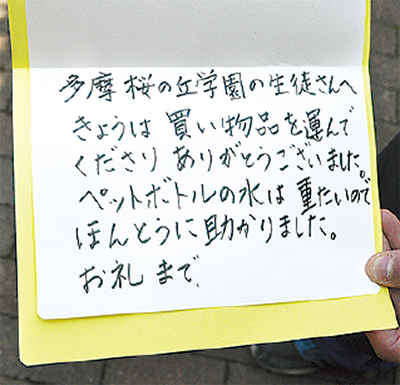 多摩桜の丘学園の生徒さんへ
きょうは買い物品を運んで
くださり ありがとうございました。
ペットボトルの水は重たいので
ほんとうに助かりました。
お礼まで